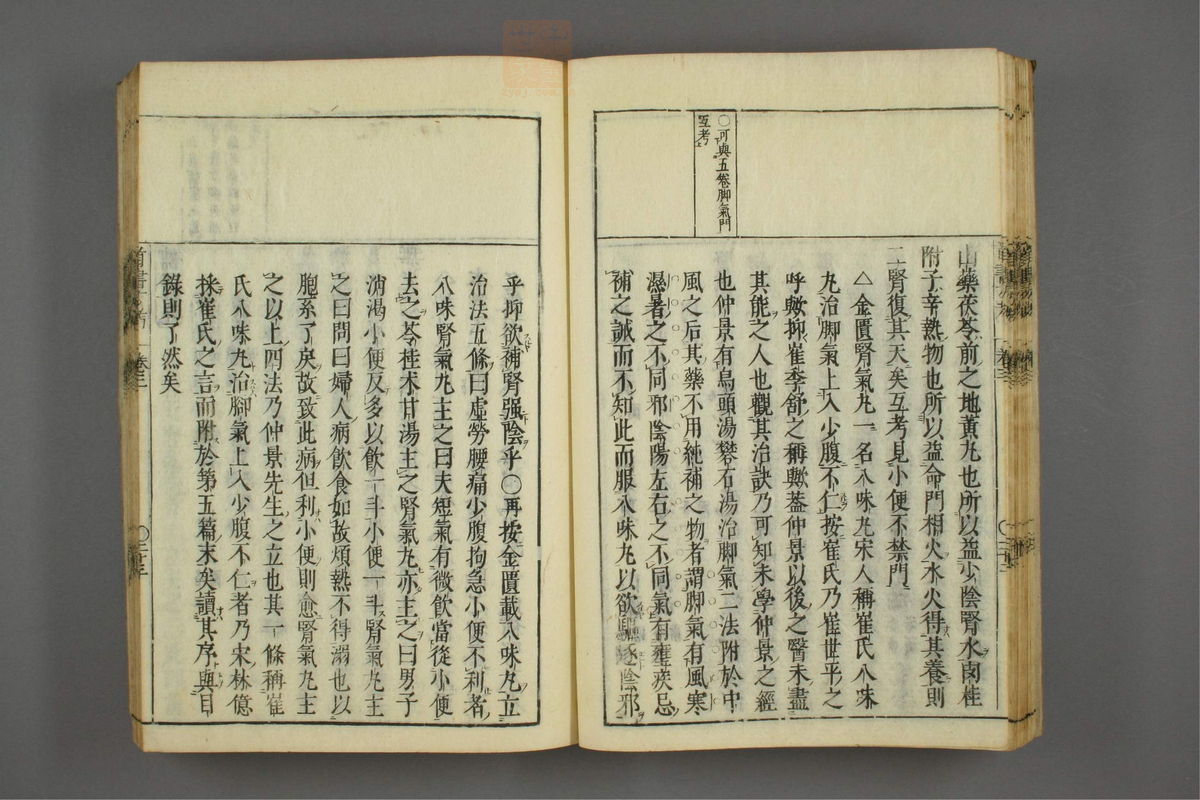 〇可與五卷脚氣門
互考
山藥茯苓前之地黃丸也所以益少陰腎水肉桂
附子辛熱物也所以益命門相火水火得其養則
二腎復其天矣互考見小便不禁門
△金匱腎氣丸一名八味丸宋人稱崔氏八味
丸治脚氣上入少腹不仁按崔氏乃崔世平之
呼歟抑崔季舒之稱歟蓋仲景以後之醫未盡
其能之人也觀其治訣乃可知未學仲景之經
也仲景有烏頭湯礬石湯治脚氣二法附於中
風之后其藥不用純補之物者謂脚氣有風寒
濕暑之不同邪陰陽左右之不同氣有壅疾忌
補之誡而不知此而服八味丸以欲驅逐陰邪
乎抑欲補腎强陰乎〇再按金匱載八味丸立
治法五條曰虛勞腰痛少腹拘急小便不利者
八味腎氣丸主之曰夫短氣有微飮當從小便
去之苓桂朮甘湯主之腎氣丸亦主之曰男子
消渴小便反多以飮一斗小便一斗腎氣丸主
之曰問曰婦人病飮食如故煩熱不得溺也以
胞系了戾故致此病但利小便則愈腎氣丸主
之以上四法乃仲景先生之立也其一條稱崔
氏八味丸治腳氣上入少腹不仁者乃宋林億
採崔氏之言而附於第五篇末矣讀其序與目
錄則了然矣